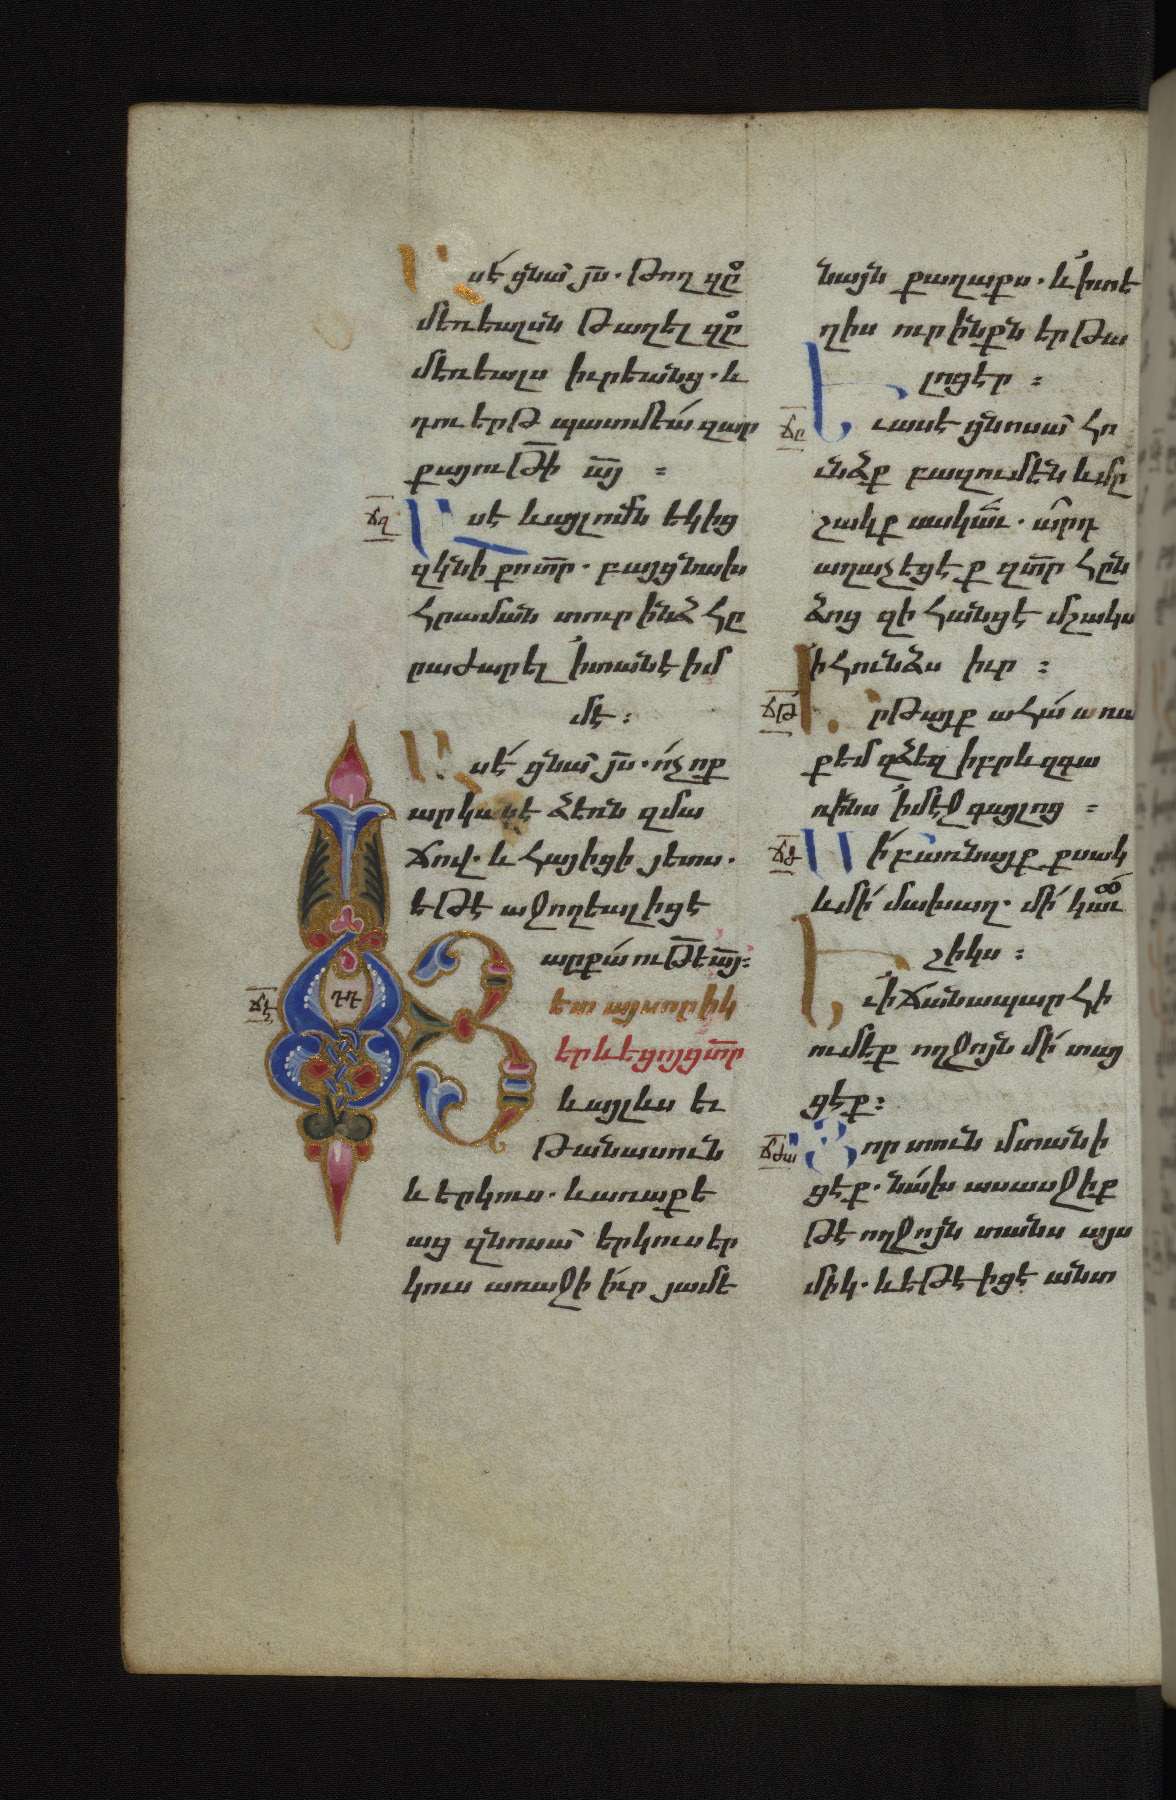 Ասէ ցնա յս. Թող զը
մեռեալսն թաղել զը
մեռեալս իւրեանց. և
դու երթ պատմեա զար
քայութի այ ։
ճզ
Ասէ և այլումն եկից
զկնի քո տր. բայց նախ
հրաման տուր ինձ հը
րաժարել ՛ի տանէ իմ
մէ ։
Ասէ ցնա յս. ոչ ոք
արկանէ ձեռն զմա
ճով. և հայիցի յետս.
եթէ աջողեալ իցէ
արքաութե այ։
ճէ
Յետ այսորիկ
երևեցոյց տր
և այլևս եւ
թանասուն
և երկուս. և առաքե
աց զնոսա երկուս եր
կուս առաջի իւր յամե
նայն քաղաքս. և ՛ի տե
ղիս ուր ինքն երթա
լոցէր ։
ճը
Եւ ասէ ցնոսա հո
ւնձք բազում են և մը
շակք սակաւ. արդ
աղաչեցէք զտր հըն
ձոց զի հանցէ մշակս
ի հունձս իւր ։
ճթ
Երթայք ահա առա
քեմ զձեզ իբրև զգա
ռինս ՛ի մէջ գայլոց ։
ճժ
Մի բառնայք քսակ
և մի մախաղ. մի կաւ
շիկս ։
Եւ ի ճանապարհի
ումեք ողջոյն մի տայ
ցէք։
ճժա
Յոր տուն մտանի
ցէք. նախ ասասջիք
թէ ողջոյն տանս այս
միկ. և եթէ իցէ անտ